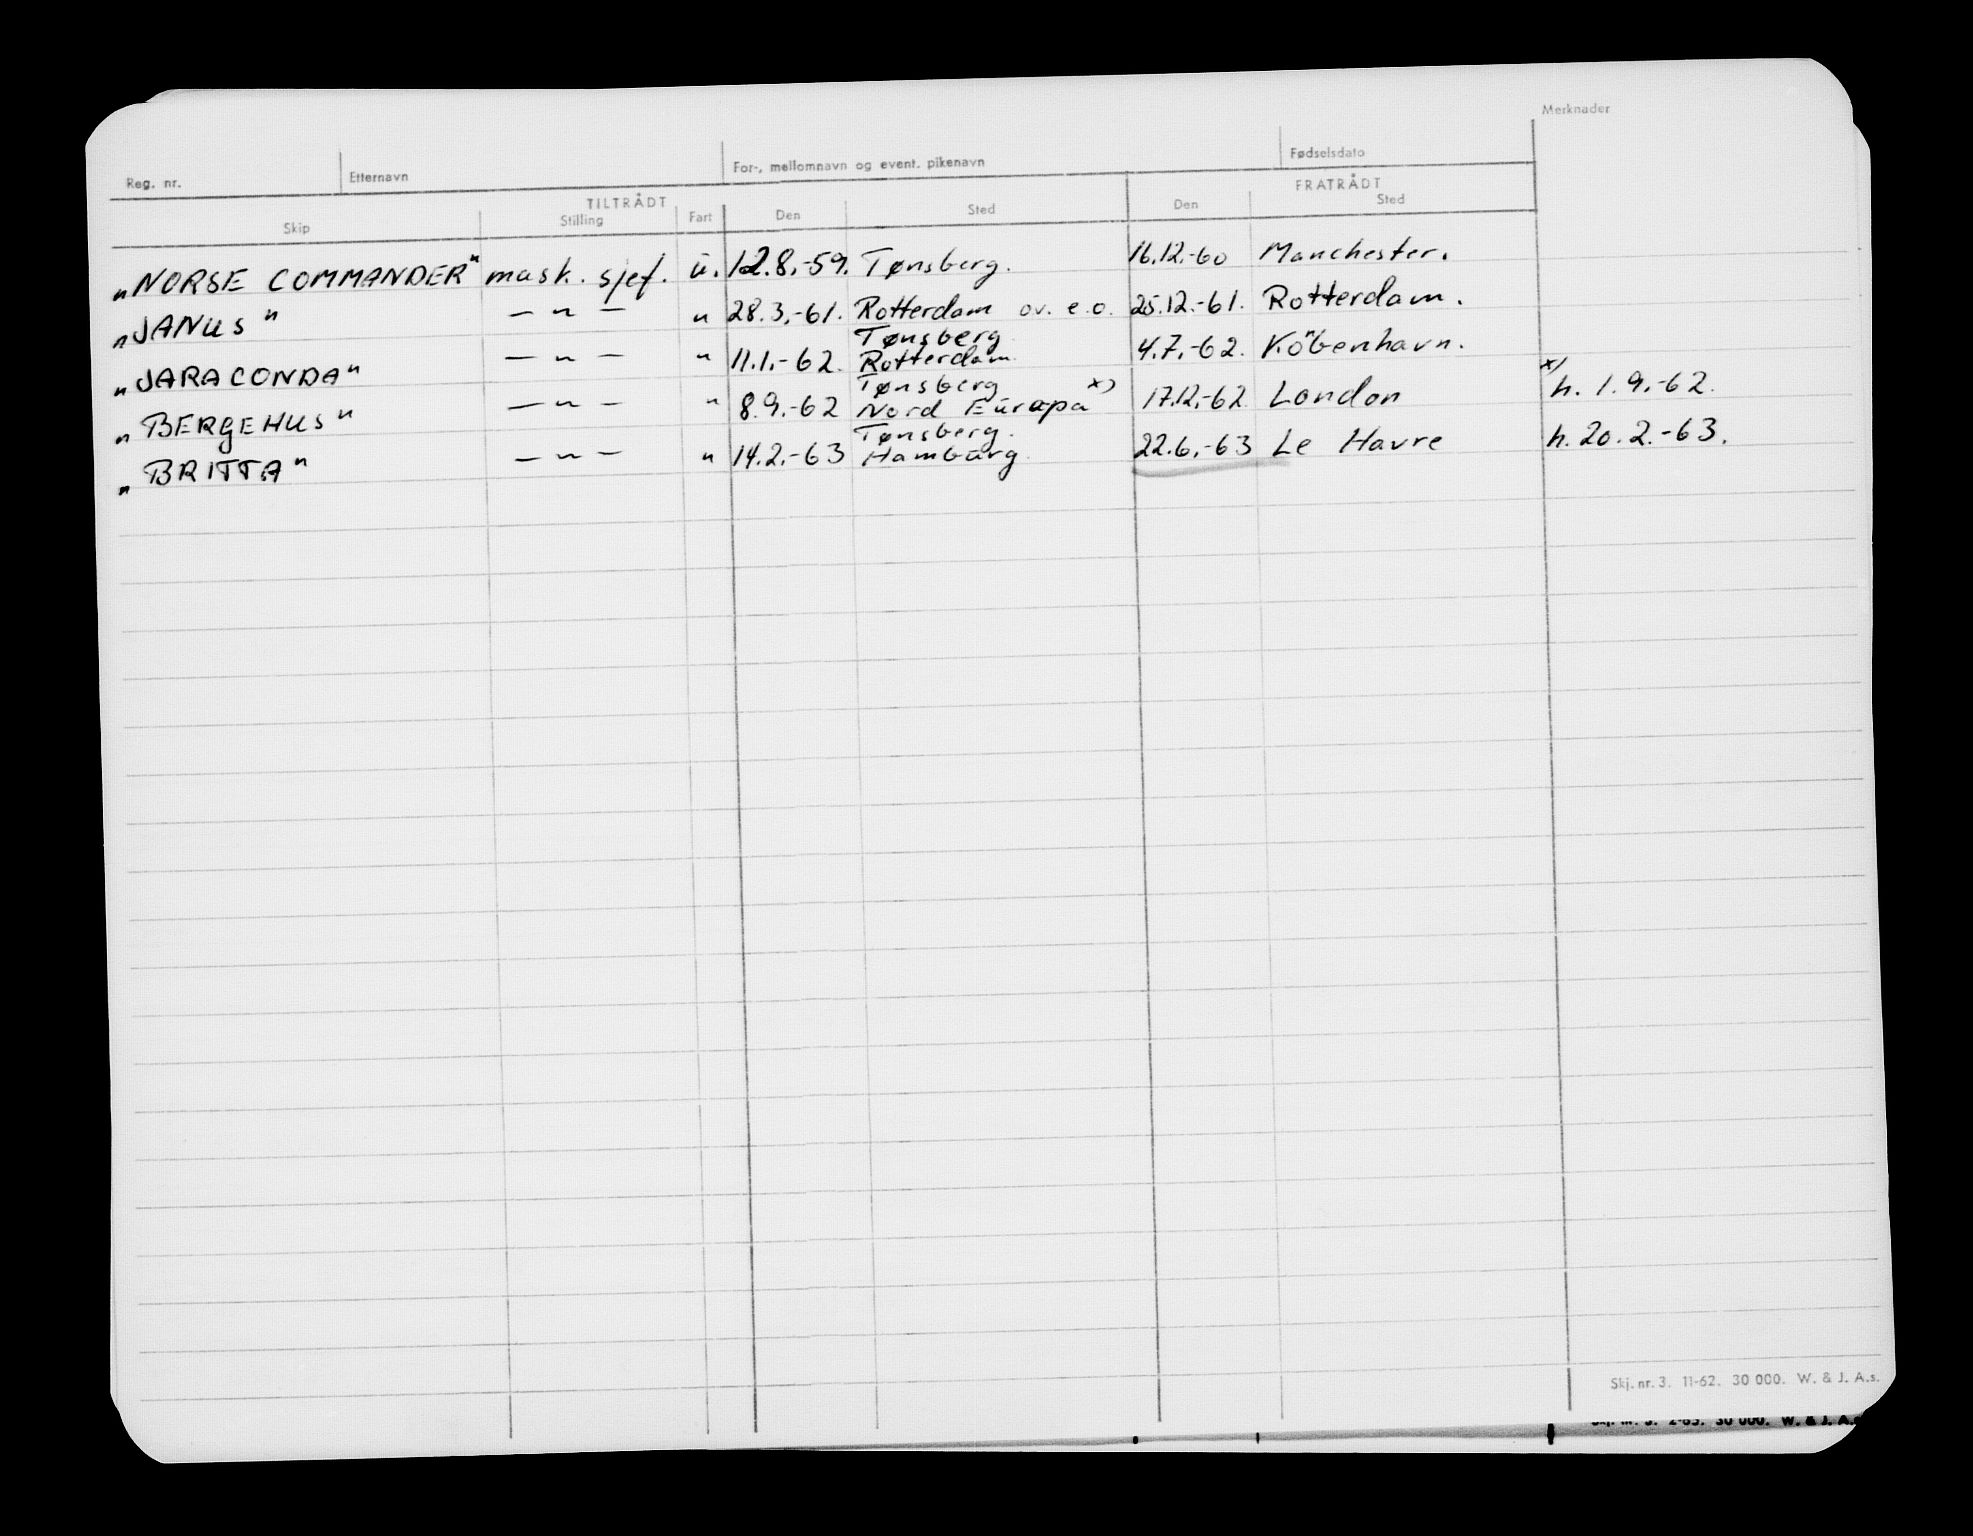 Merknader
Reg. nr. Etternavn For-, mellomnavn og event. pikenavn Fødselsdato
TILTRÅDT FRATRÅDT
Skip Stilling Fart Den Sted Den Sted
„NORSE COMMANDER" mask. sjef. u. 12.8.-59. Tønsberg. 16.12.-60 Manchester.
„JANUS" — " — " 28.3.-61. Rotterdam ov. e.o. 25.12.-61. Rotterdam.
Tønsberg
„JARACONDA" — " — " 11.1.-62. Rotterdam. 4.7.-62. Köbenhavn.
Tønsberg x) x)
„BERGEHUS" — " — " 8.9.-62 Nord Europa 17.12.-62. London h. 1.9.-62.
Tønsberg.
„BRITTA" — " — " 14.2.-63 Hamburg 22.6.-63 Le Havre h. 20.2.-63.
Skj. nr. 3. 11-62. 30 000. W. & J. A.s.
Skj. nr. 3. 2-65. 30 000. W. & J. A.s